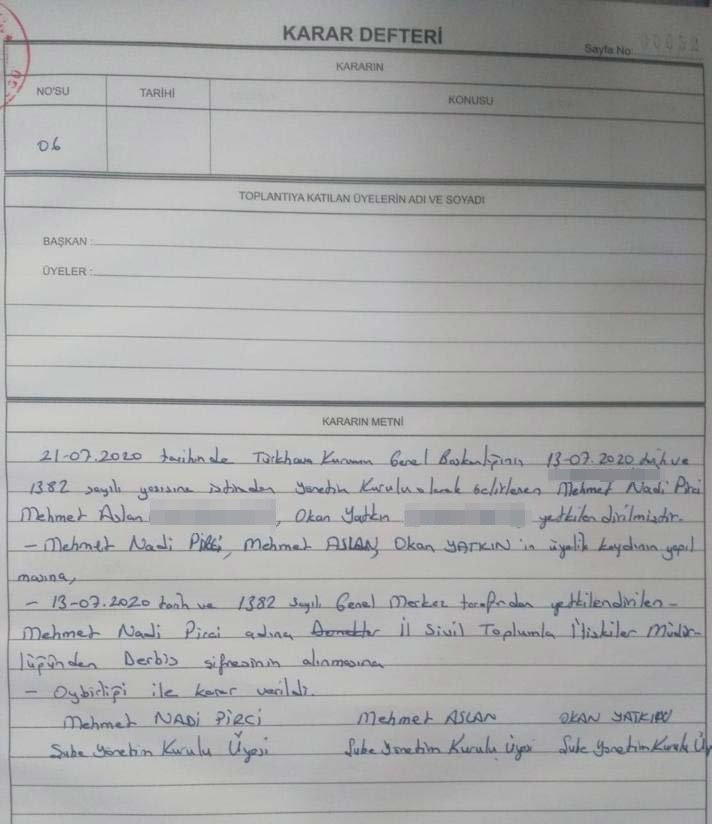 KARAR DEFTERİ
Sayfa No:
KARARIN
NO'SU TARİHİ KONUSU
06
TOPLANTIYA KATILAN ÜYELERİN ADI VE SOYADI
BAŞKAN :
ÜYELER :
KARARIN METNİ
21-07.2020 tarihinde Türkhava Kurumu Genel Başkanlığının 13-07.2020 tarih ve
1382 sayılı yazısına istinden Yönetim Kurulu olarak belirlenen Mehmet Nadi Pirci
Mehmet Aslan , Okan Yatkın yetkilendirilmiştir.
- Mehmet Nadi Pirci, Mehmet ASLAN, Okan YATKIN'in üyelik kaydının yapıl
masına,
- 13-07.2020 tarih ve 1382 sayılı Genel Merkez tarafından yetkilendirilen-
Mehmet Nadi Pirci adına İl Sivil Toplumla İlişkiler Müdür-
lüğünden Derbis şifresinin alınmasına
- Oybirliği ile karar verildi.
Mehmet NADİ PİRCİ Mehmet ASLAN OKAN YATKIN
Şube Yönetim Kurulu Üyesi Şube Yönetim Kurulu Üyesi Şube Yönetim Kurulu Üy